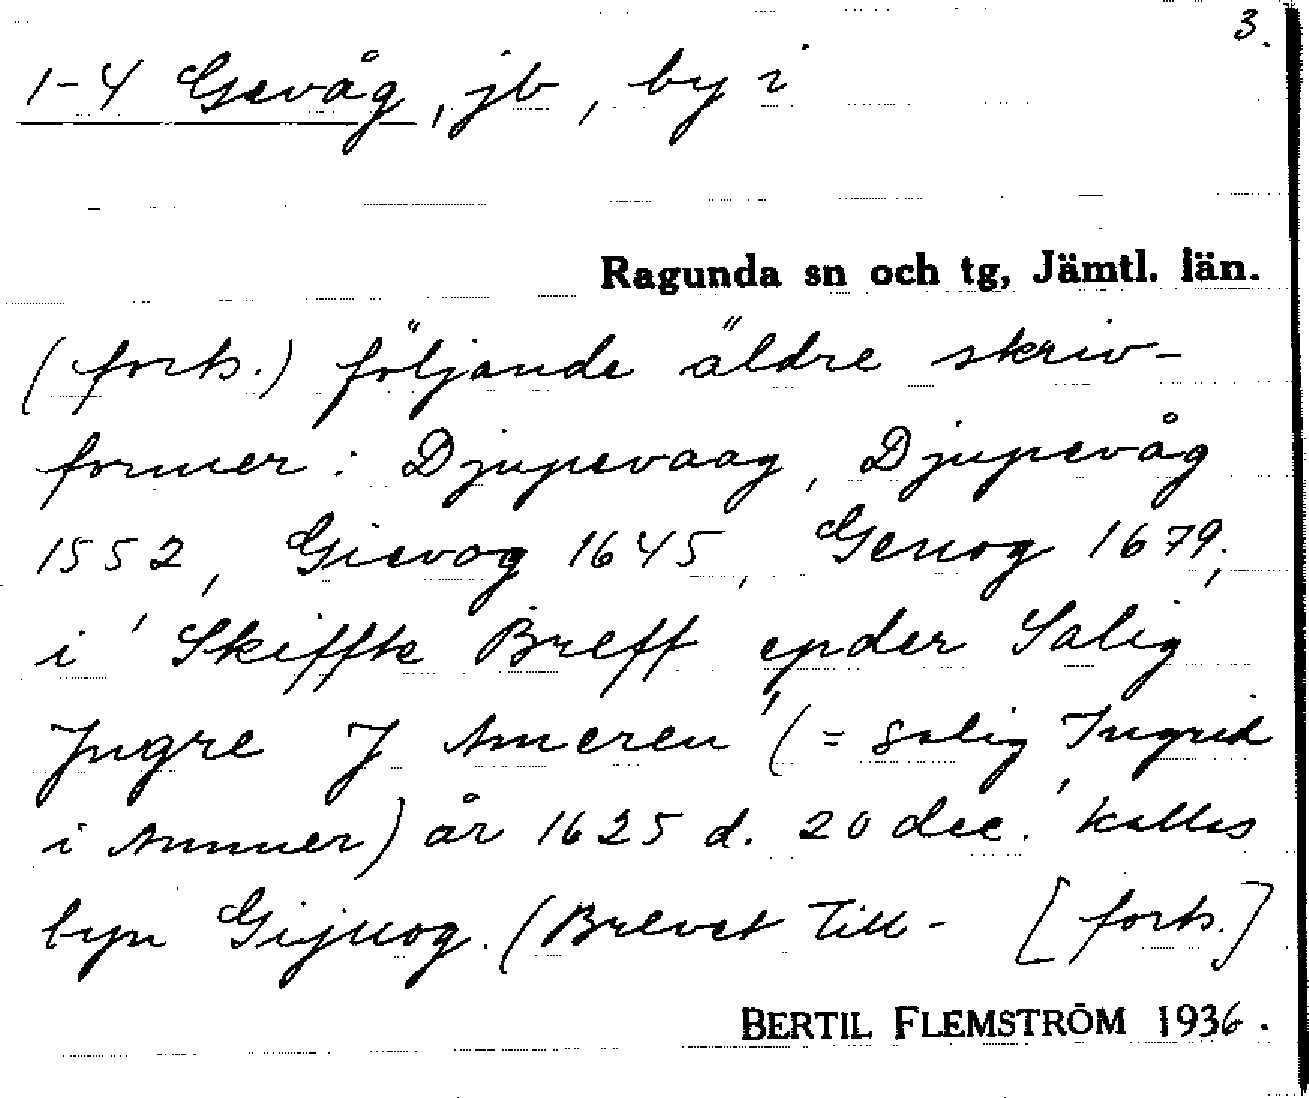 3.
1-4 Gevåg, jb, by i
Ragunda sn och tg, Jämtl. län.
(forts.) följande äldre skriv-
former: Djupevaag, Djupevåg
1552, Gievog 1645, Geuog 1679;
i 'Skiffte Breff epder Salig
Jngre J Ameren' (= salig Ingrid
i Ammer) år 1625 d. 20 dec. kallas
byn Gijuog. (Brevet till- [forts.]
BERTIL FLEMSTRÖM 1936.